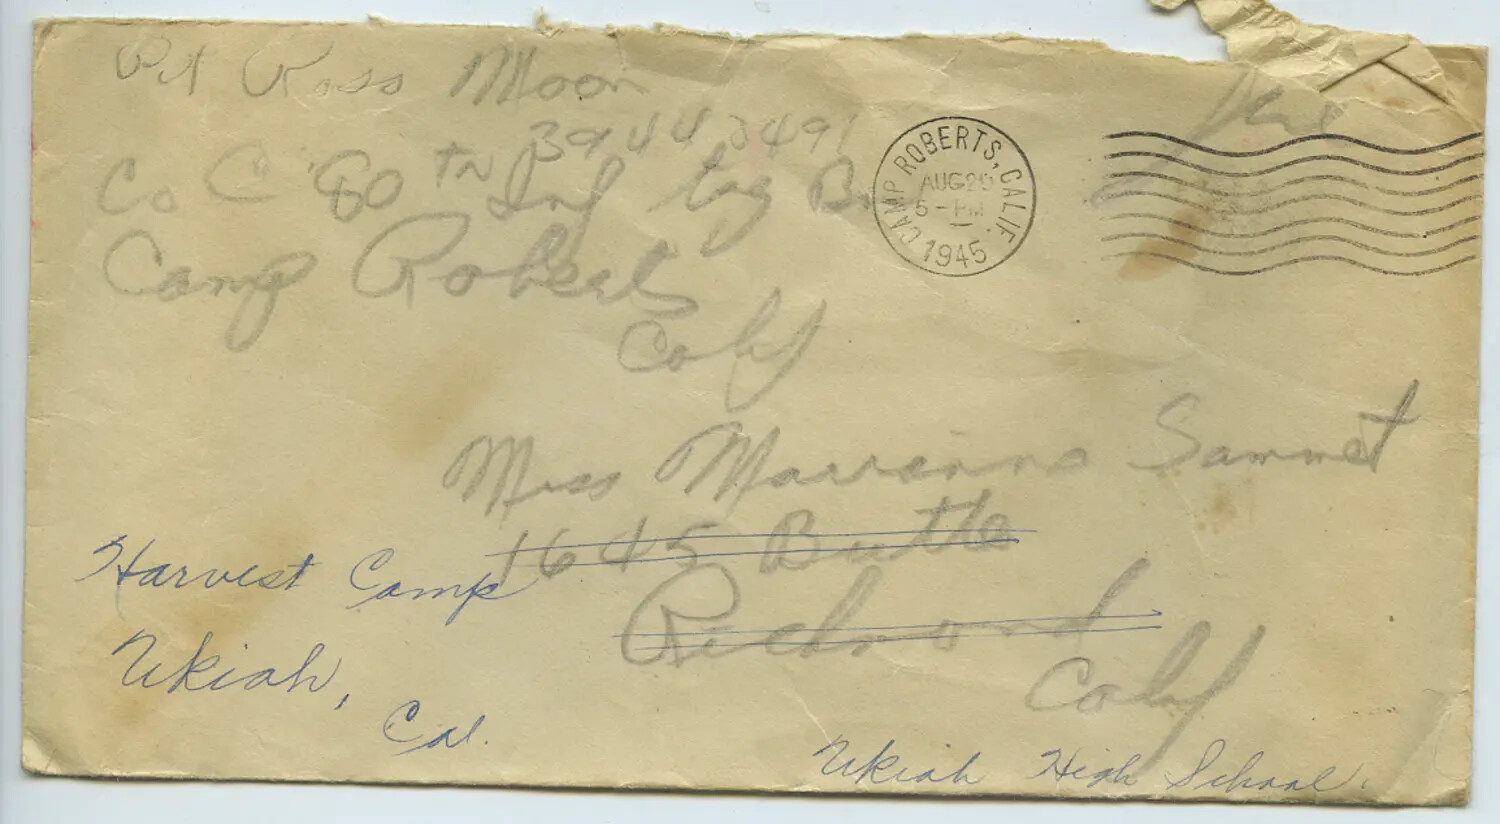 Pvt Ross Moon
39443491
Co C 80 TH Inf trg Bn
Camp Roberts
Calif
Free
CAMP ROBERTS, CALIF.
AUG 20
5-PM
1945
Miss Marianne Sammet
1645 Butte
Richmond
Calif
Harvest Camp
Ukiah,
Cal.
Ukiah High School.